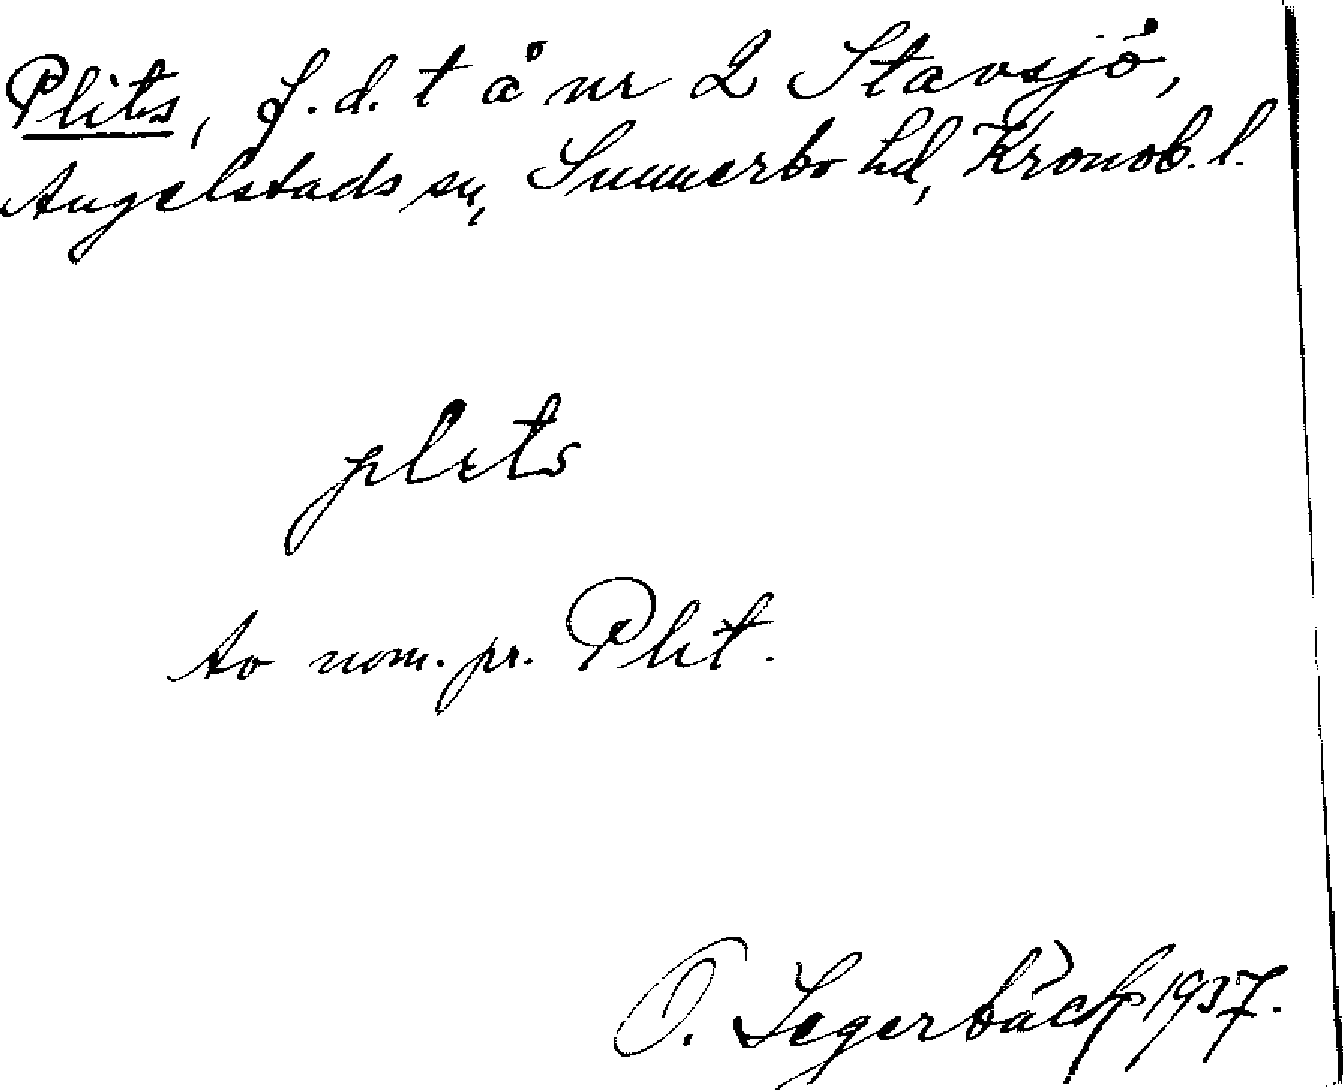 Plits, f.d. t å nr 2 Stavsjö,
Angelstads sn, Sunnerbo hd, Kronob. l.
plets
to nom. pr. Plit.
O. Segerbäck 1937.